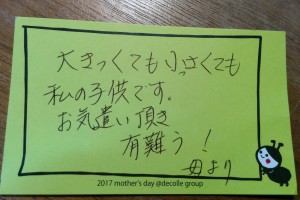 大きくても小さくても
私の子供です。
お気遣い頂き
有難う！
母より
2017 mother's day @decolle group